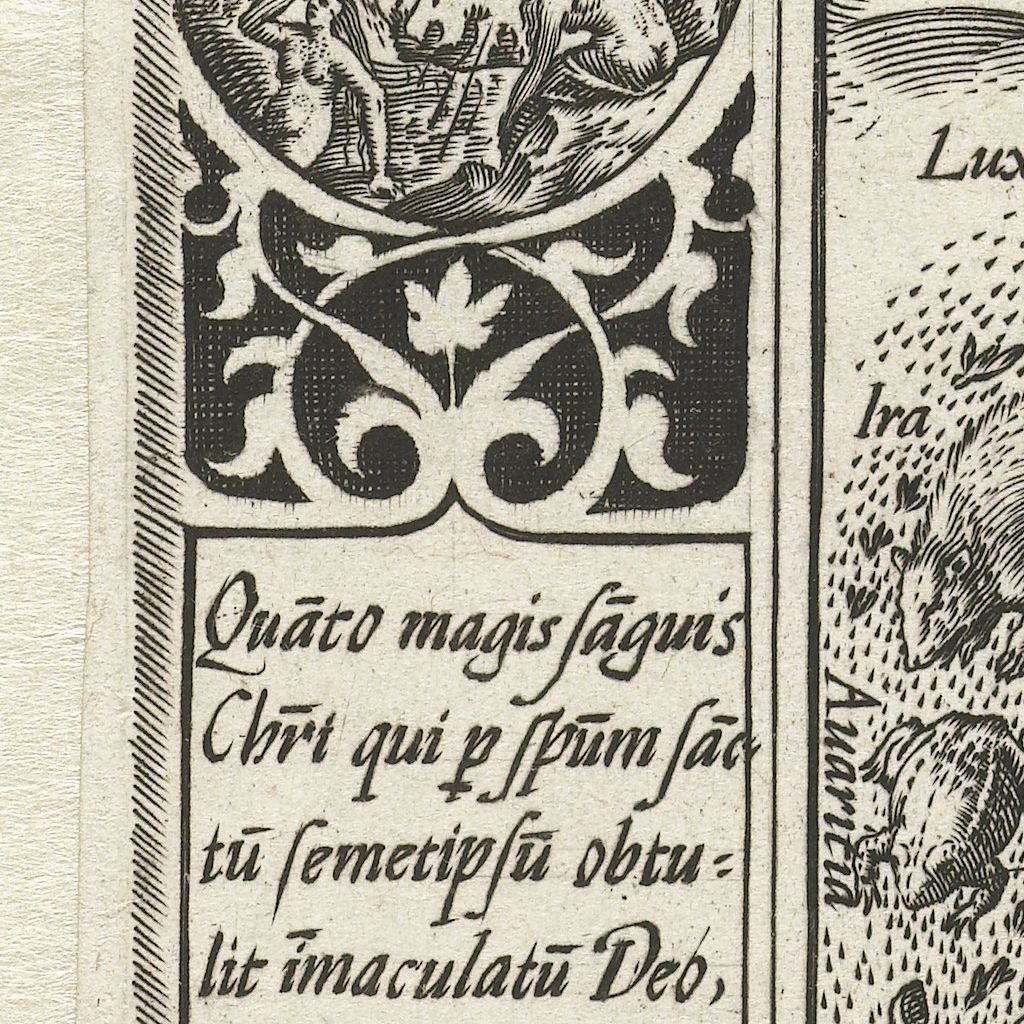 Lux
Ira
Auaritia
Quāto magis ſāguis
Chr̄i qui ꝑ ſpūm ſāc-
tū ſemetipſū obtu=
lit īmaculatū Deo,